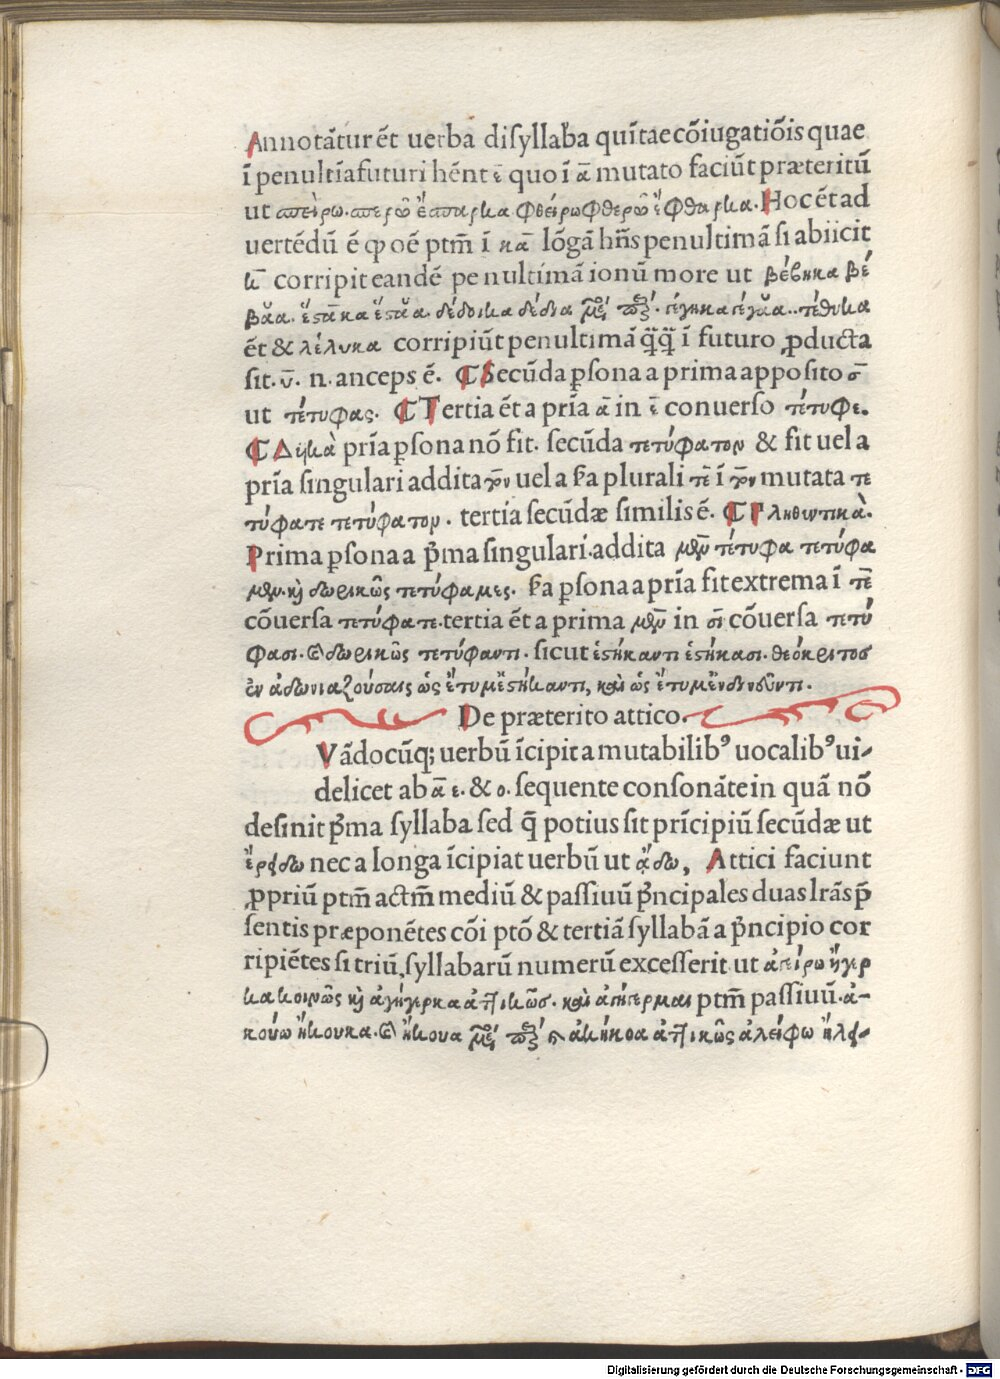 Annotãtur ẽt uerba disyllaba quĩtae cõiugatiõis quae
ĩ penultĩa futuri hẽnt ε̄ quo ĩ ᾱ mutato faciũt præteritũ
ut σπείρω. σπερῶ ἔσπαρκα φθείρω φθερῶ ἔφθαρκα. Hoc ẽt ad
uertẽdũ ẽ ꝙ oẽ ptm̃ ĩ κᾱ lõgã hñs penultimã si abiicit
κ̄ corripit eandẽ penultimã ionũ more ut βέβηκα βέ
βᾰα. ἕστᾱκα ἕσταᾰ. δέδοικα δέδια
ẽt & λέλυκα corripiũt penultimã q̃q̃ ĩ futuro ꝓducta
sit. ῡ. n. anceps ẽ. ⁋ Secũda ꝑsona a prima apposito σ̄
ut τέτυφας. ⁋ Tertia ẽt a pria ᾱ in ε̄ conuerso τέτυφε.
⁋ Δυϊκὰ pría ꝑsona nõ fit. secũda τετύφατον & fit uel a
pría singulari addita τον uel a ẞa plurali τε̄ ĩ τον mutata τε
τύφατε τετύφατον. tertia secũdæ similis ẽ. ⁋ Πληθωτικὰ.
Prima ꝑsona a p̃ma singulari addita μεν τέτυφα τετύφα
μεν. κ̀ δωρικῶς τετύφαμες. ẞa ꝑsona a pría fit extrema ĩ τε̄
cõuersa τετύφατε. tertia ẽt a prima μεν in σῑ cõuersa τετύ
φασι. & δωρικῶς τετύφαντι. sicut ἑστήκαντι ἑστήκασι. θεόκριτοσ
ἐν ἀδωνιαζούσαις ὡς ἔτυμ' ἕστήκαντι, καὶ ὡς ἔτυμ' ἐνδινοῦντι.
De præterito attico.
Vãdocũq; uerbũ ĩcipit a mutabilibꝰ uocalibꝰ ui-
delicet ab ᾱ ε. & ο. sequente consonãte in quã nõ
desinit p̃ma syllaba sed q̃ potius sit prícipiũ secũdæ ut
ἔρδω nec a longa ĩcipiat uerbũ ut ᾄδω, Attici faciunt
ꝓpriũ ptm̃ actm̃ mediũ & passiuũ p̃ncipales duas lrãs p̃
sentis præponẽtes cõi ptõ & tertiã syllabã a p̃ncipio cor
ripiẽtes si triũ syllabarũ numerũ excesserit ut ἀγείρω ἤγερ
κα κοινῶς κ̀ ἀγήγερκα ἀττικῶσ. καὶ ἀγήγερμαι ptm̃ passiuũ. ἀ-
κούω ἤκουκα. & ἤκουα ἀκήκοα ἀττικῶς ἀλείφω ἤλει-
Digitalisierung gefördert durch die Deutsche Forschungsgemeinschaft - DFG